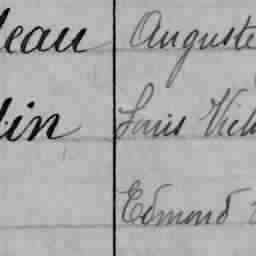 leau Auguste
lin Louis Vict
Edmond